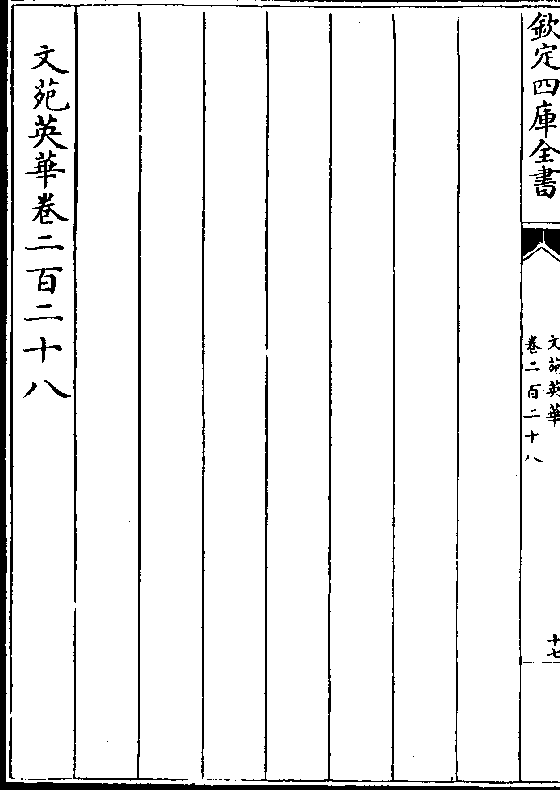 欽定四庫全書
文苑英華
卷二百二十八
十七
文苑英華卷二百二十八